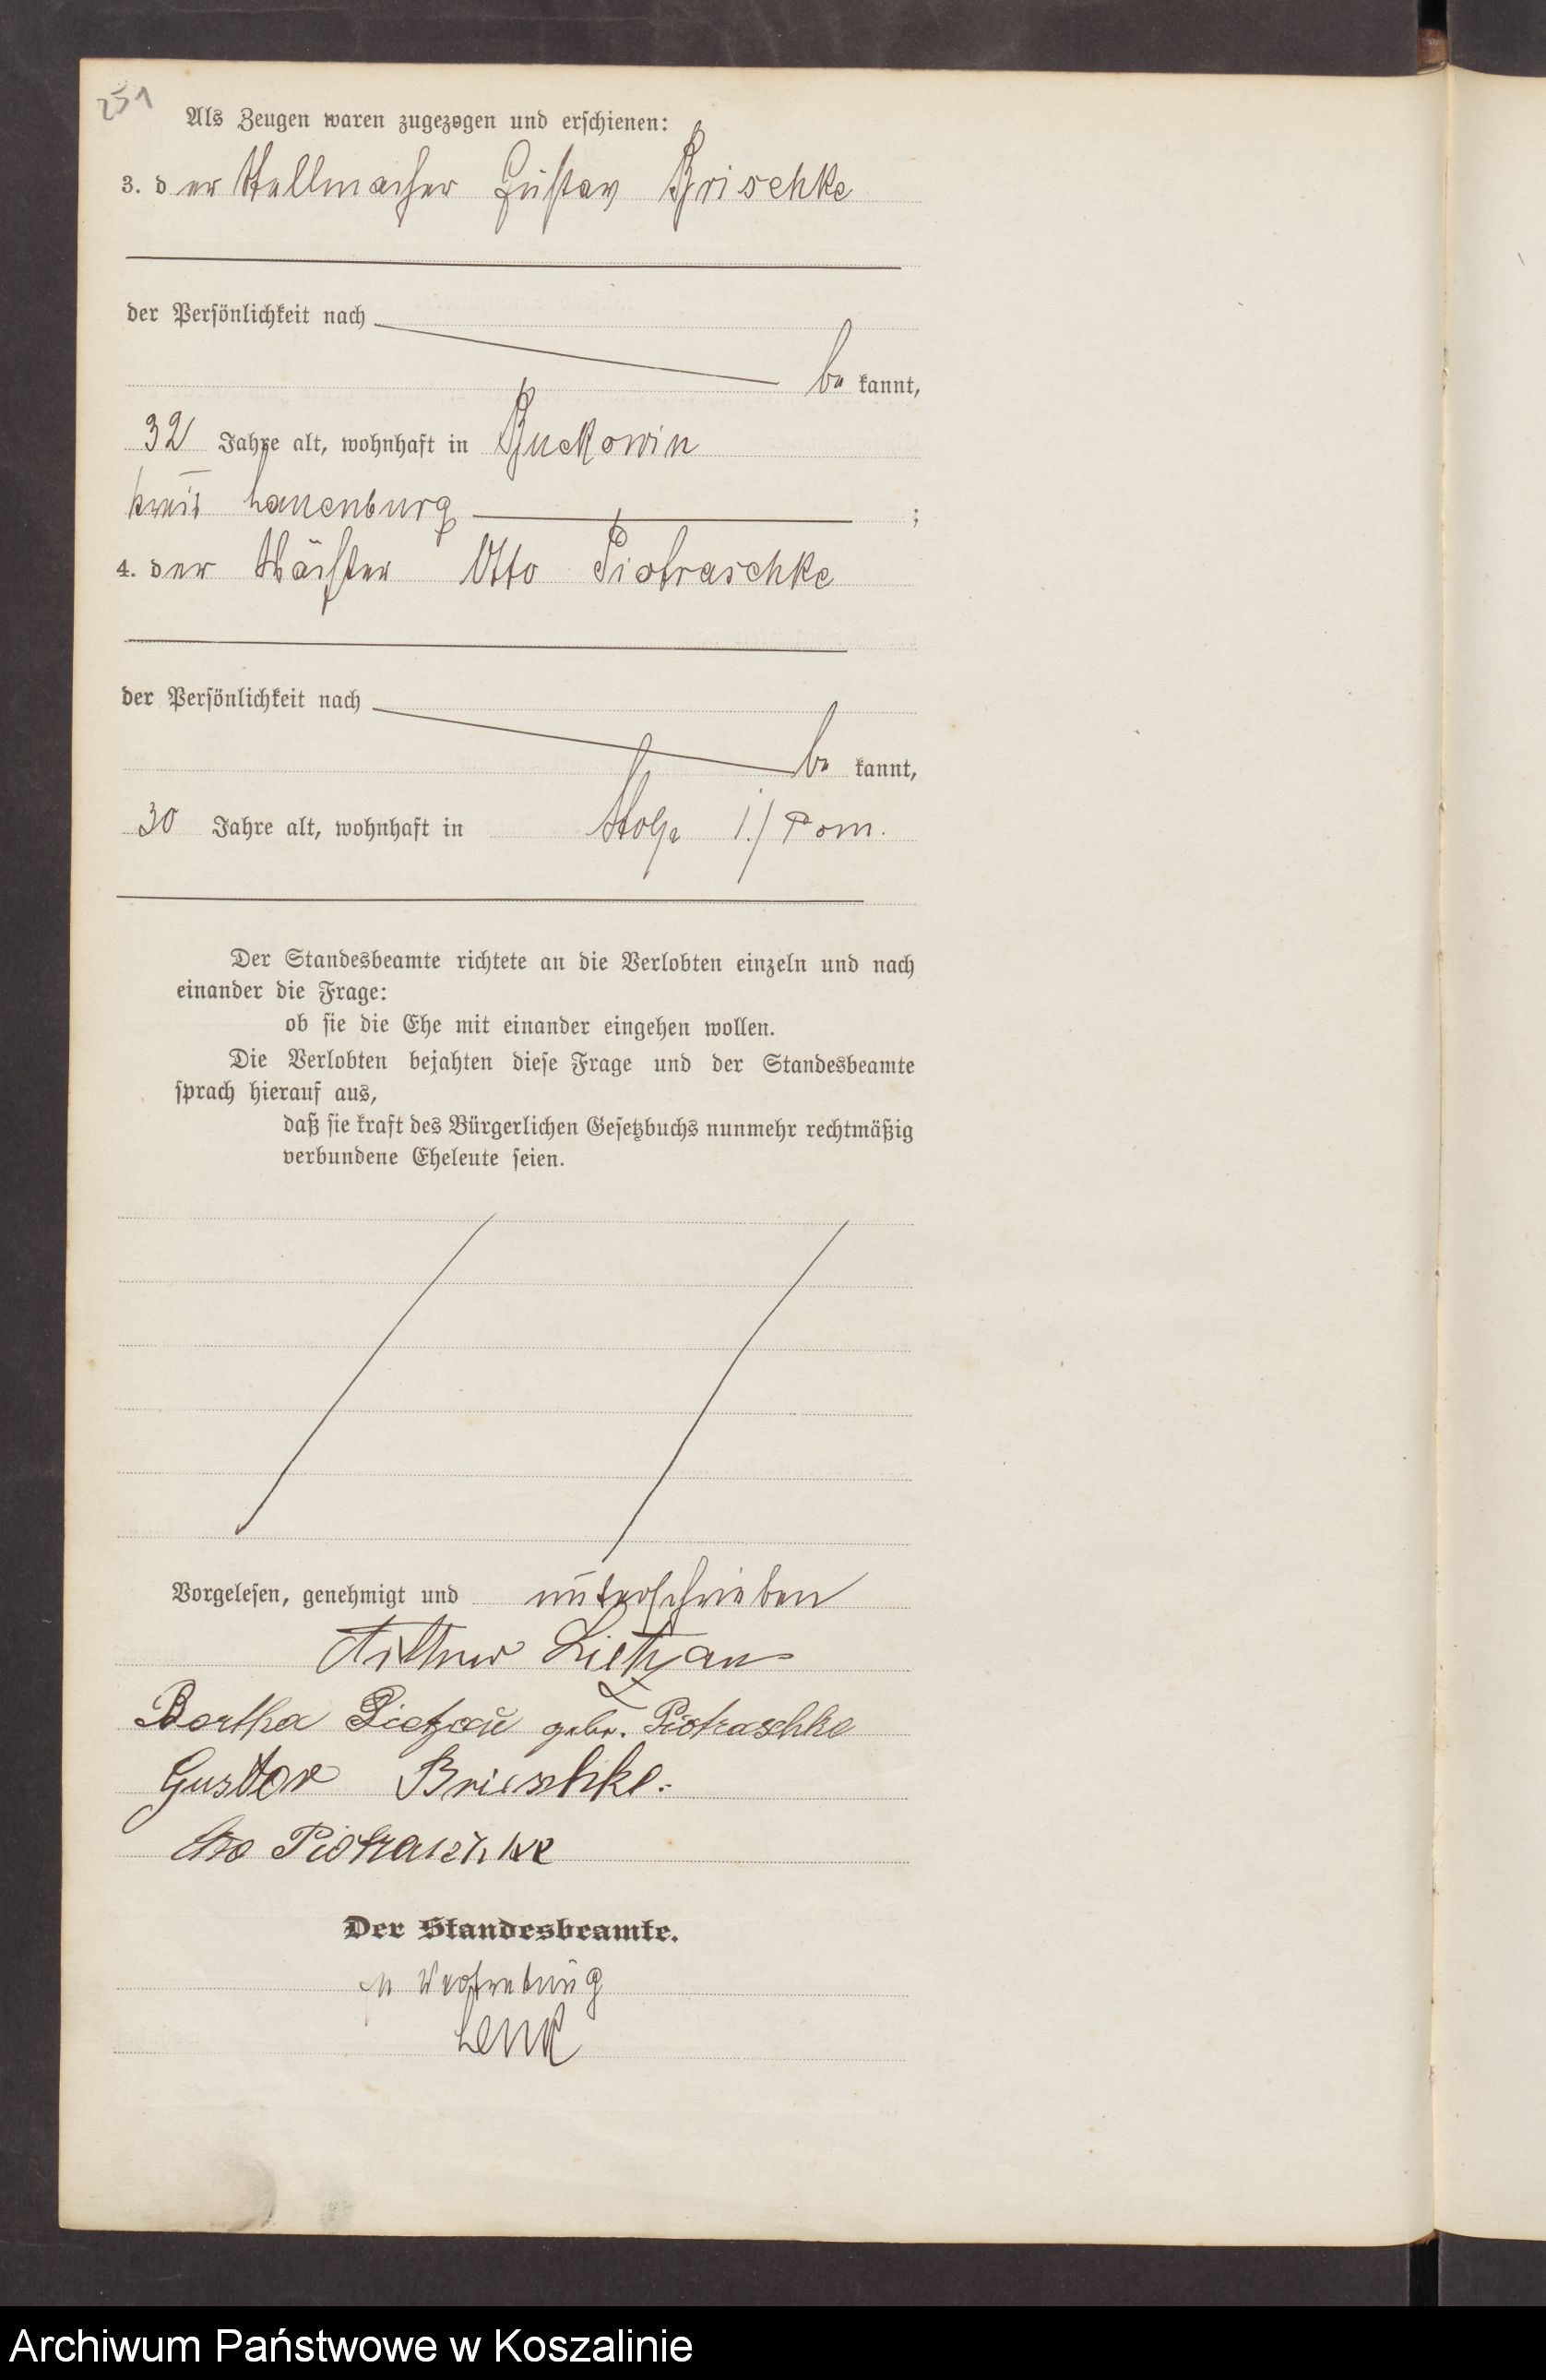 251
Als Zeugen waren zugezogen und erschienen:
3. der Stellmacher Gustav Brischke
der Persönlichkeit nach
be kannt,
32 Jahre alt, wohnhaft in Buckowin
Kreis Lauenburg ;
4. der Wächter Otto Piotraschke
der Persönlichkeit nach
be kannt,
30 Jahre alt, wohnhaft in Stolp i./Pom.
Der Standesbeamte richtete an die Verlobten einzeln und nach
einander die Frage:
ob sie die Ehe mit einander eingehen wollen.
Die Verlobten bejahten diese Frage und der Standesbeamte
sprach hierauf aus,
daß sie kraft des Bürgerlichen Gesetzbuchs nunmehr rechtmäßig
verbundene Eheleute seien.
Vorgelesen, genehmigt und unterschrieben
Arthur Lietzau
Bertha Lietzau gebr. Piotraschke
Gustav Brieschke.
Otto Piotraschke
Der Standesbeamte.
In Vertretung
Lenk
Archiwum Państwowe w Koszalinie